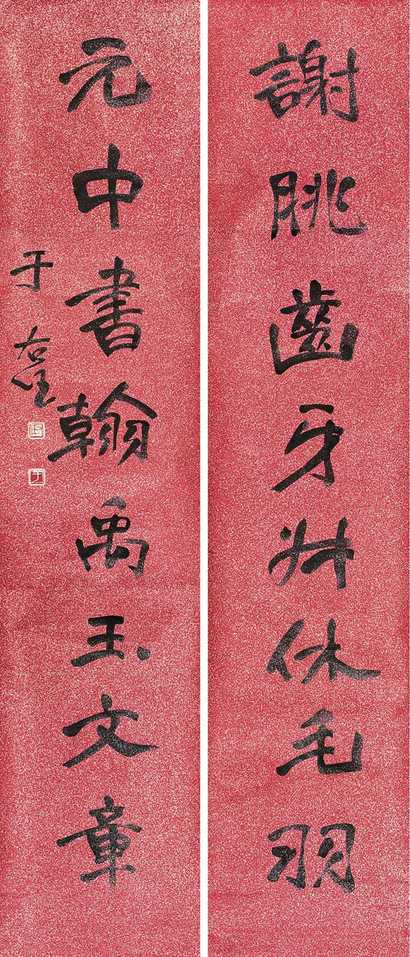 謝朓齒牙艸休毛羽
元中書翰禹玉文章
于右任